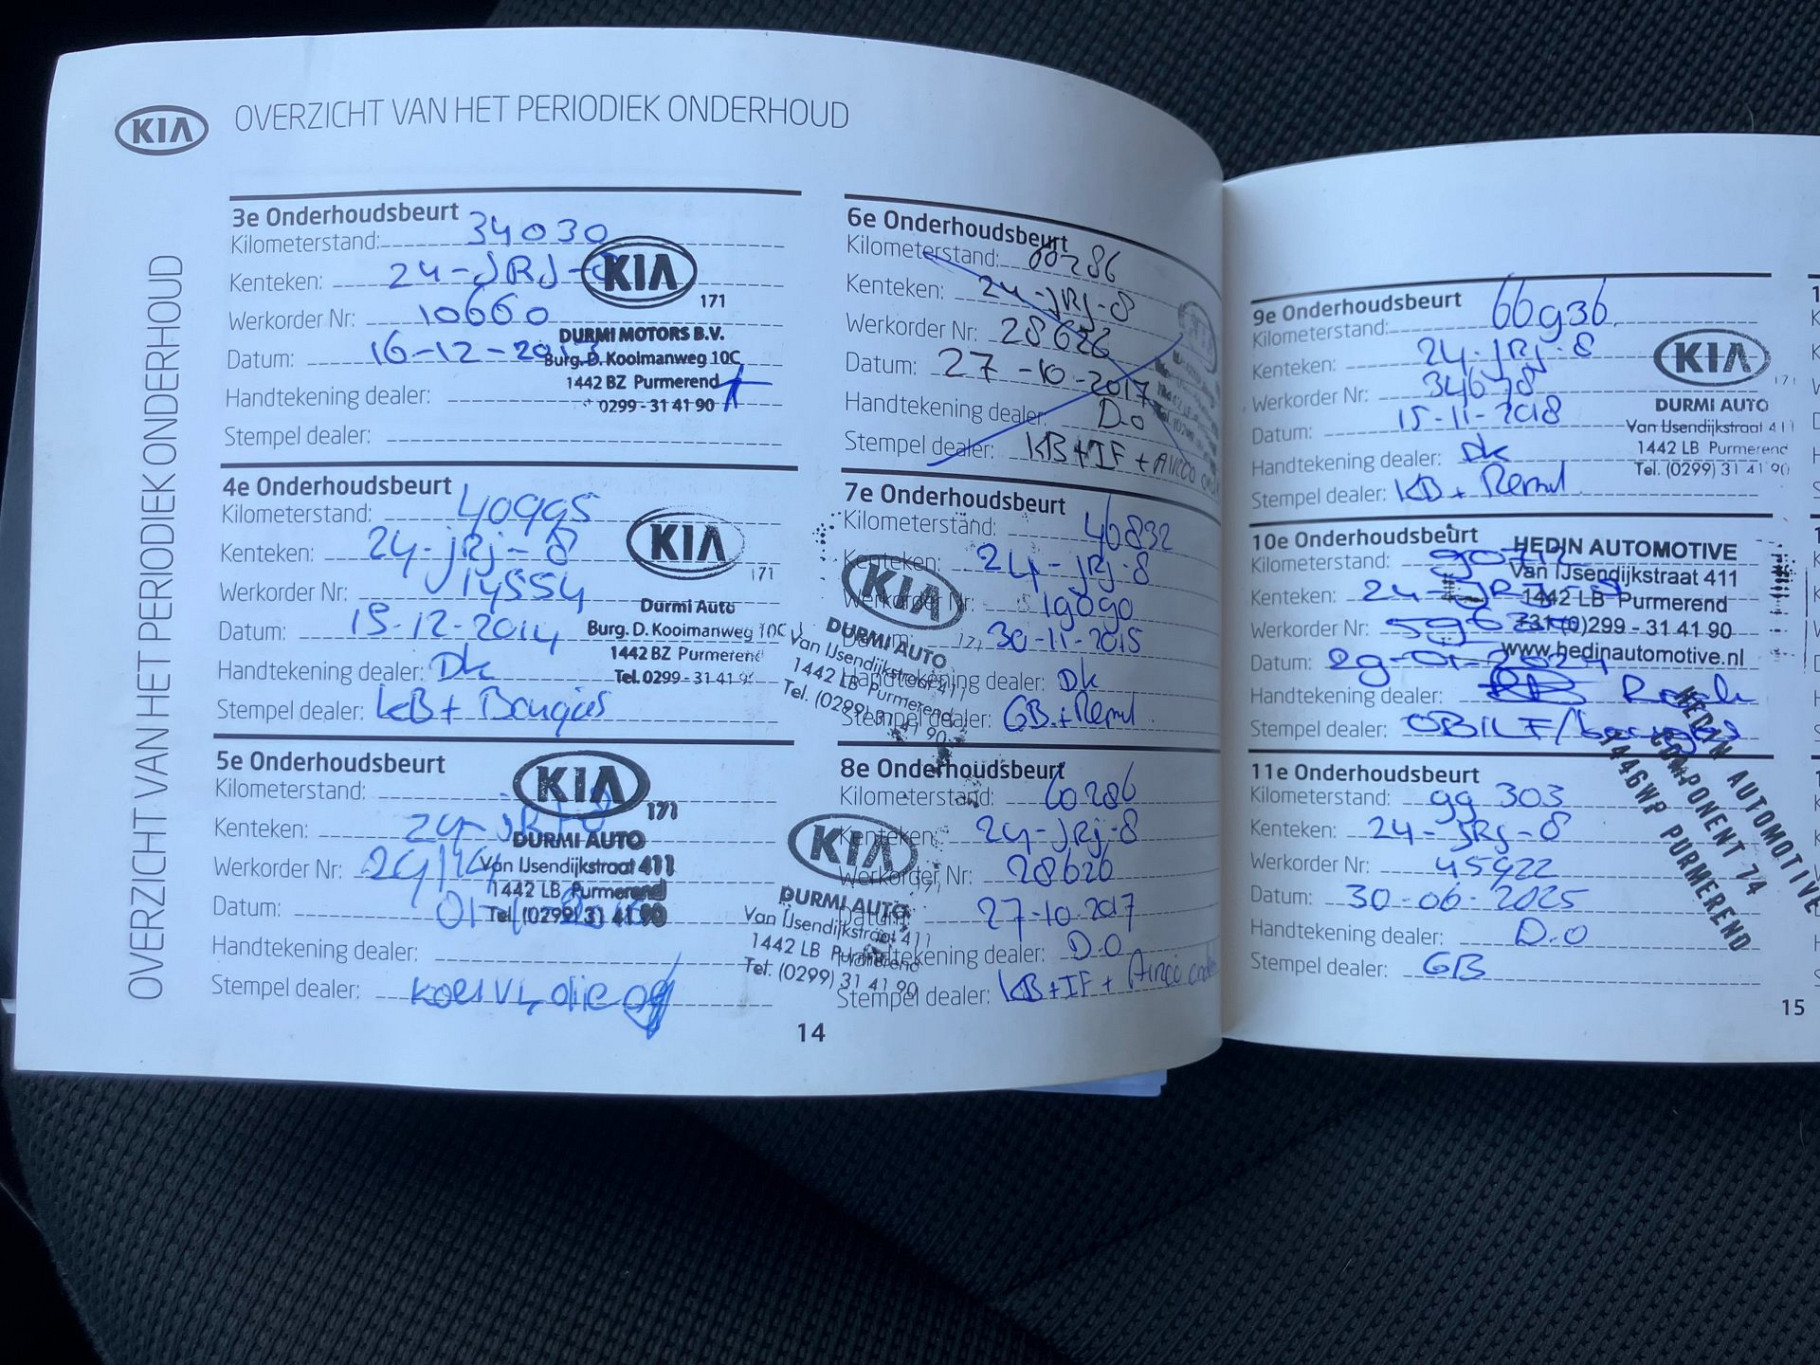 KIA OVERZICHT VAN HET PERIODIEK ONDERHOUD
OVERZICHT VAN HET PERIODIEK ONDERHOUD
3e Onderhoudsbeurt
Kilometerstand: 34030
Kenteken: 24-JRJ-
Werkorder Nr: 10660
Datum: 16-12-
Handtekening dealer:
Stempel dealer:
KIA
171
DURMI MOTORS B.V.
Burg. D. Kooimanweg 10C
1442 BZ Purmerend
0299 - 31 41 90
4e Onderhoudsbeurt
Kilometerstand: 40995
Kenteken: 24-JRJ-8
Werkorder Nr: 14554
Datum: 15-12-2014
Handtekening dealer: Dk
Stempel dealer: KB + Bougies
KIA
171
Durmi Auto
Burg. D. Kooimanweg 10C
1442 BZ Purmerend
Tel. 0299 - 31 41 90
5e Onderhoudsbeurt
Kilometerstand:
Kenteken: 24-JRJ-8
Werkorder Nr:
Datum:
Handtekening dealer:
Stempel dealer:
KIA
171
DURMI AUTO
Van IJsendijkstraat 411
1442 LB Purmerend
Tel. (0299) 31 41 90
6e Onderhoudsbeurt
Kilometerstand: 60286
Kenteken: 24-JRJ-8
Werkorder Nr: 28626
Datum: 27-10-2017
Handtekening dealer: D.O
Stempel dealer: KB + IF + AIRCO
7e Onderhoudsbeurt
Kilometerstand: 46832
Kenteken: 24-JRJ-8
Werkorder Nr: 19090
Datum: 30-11-2015
Handtekening dealer: Dk
Stempel dealer: GB + Remvl.
KIA
171
DURMI AUTO
Van IJsendijkstraat 411
1442 LB Purmerend
Tel. (0299) 31 41 90
8e Onderhoudsbeurt
Kilometerstand: 60286
Kenteken: 24-JRJ-8
Werkorder Nr: 28626
Datum: 27-10-2017
Handtekening dealer: D.O
Stempel dealer: KB + IF + Airco
KIA
DURMI AUTO
Van IJsendijkstraat 411
1442 LB Purmerend
Tel. (0299) 31 41 90
14
9e Onderhoudsbeurt
Kilometerstand: 66936
Kenteken: 24-JRJ-8
Werkorder Nr: 34678
Datum: 15-11-2018
Handtekening dealer: Dk
Stempel dealer: KB + Remvl
KIA
171
DURMI AUTO
Van IJsendijkstraat 411
1442 LB Purmerend
Tel. (0299) 31 41 90
10e Onderhoudsbeurt
Kilometerstand:
Kenteken: 24-JRJ-8
Werkorder Nr:
Datum: 29-01-2024
Handtekening dealer:
Stempel dealer:
HEDIN AUTOMOTIVE
Van IJsendijkstraat 411
1442 LB Purmerend
+31 (0)299 - 31 41 90
www.hedinautomotive.nl
11e Onderhoudsbeurt
Kilometerstand: 99303
Kenteken: 24-JRJ-8
Werkorder Nr: 45922
Datum: 30-06-2025
Handtekening dealer: D.O
Stempel dealer: GB
HEDIN AUTOMOTIVE
COMPONENT 74
1446WP PURMEREND
15